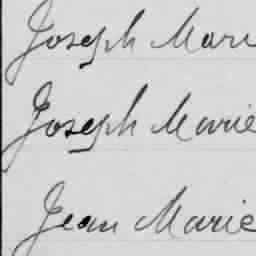 Joseph Mari
Joseph Marie
Jean Marie